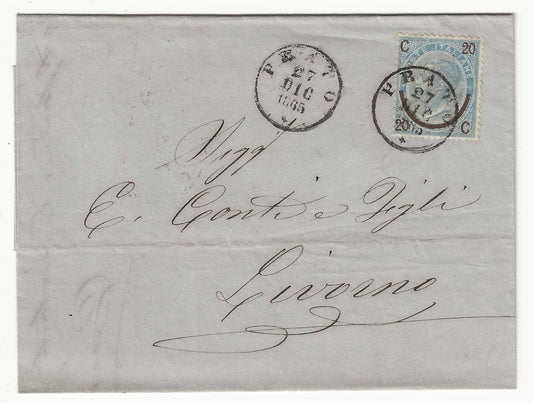 PRATO
27
DIC
1865
C 20
POSTE ITALIANE
PRATO
27
DIC
20 C
Sigg
E. Conti e Figli
Livorno